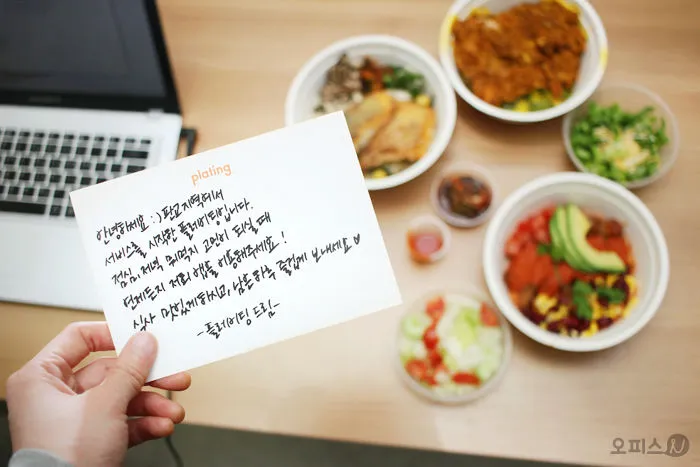 plating
안녕하세요 :) 판교지역에서
서비스를 시작한 플레이팅입니다.
점심, 저녁 뭐먹지 고민이 되실 때
언제든지 저희 앱을 이용해주세요!
식사 맛있게하시고, 남은하루 즐겁게 보내세요♡
-플레이팅 드림-
오피스N